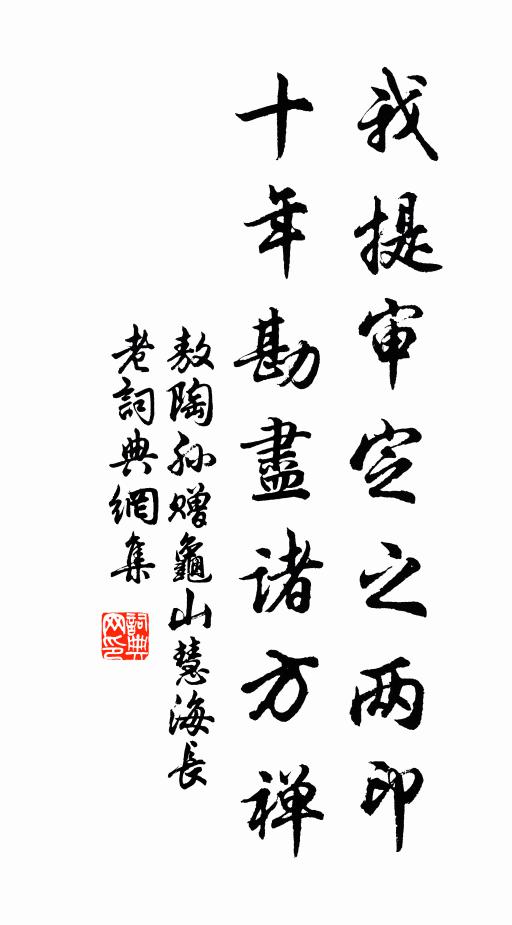 我提审定之两印
十年勘盡诸方禅
敖陶孙赠龜山慧海長
老詞典網集
詞典
网印